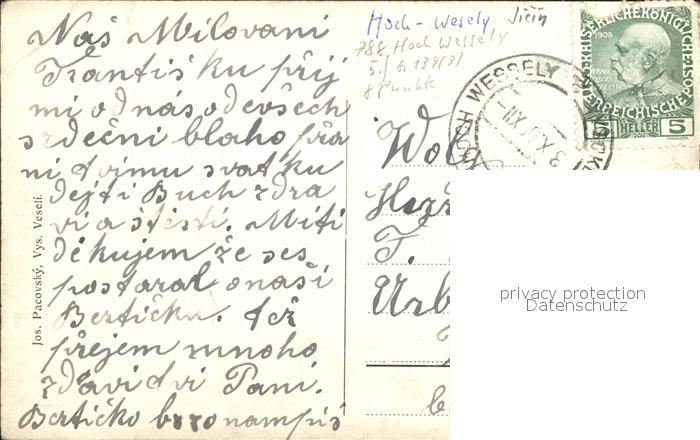 Náš Milovaní
Františku přij
mi od nás ode všech
srdeční blaho přá
ní tvímu svatku
dejti Buch zdra
ví a štěstí. Míti
děkujem že ses
postaral o naší
Bertičku. též
přejem mnoho
zdaví tví Paní.
Bertičko brzo nam piš
Jos. Pacovský, Vys. Veselí.
Hoch-Wesely Jičín
788 Hoch Wessely
5./6 138(8)
8 Punkte
HOCH WESSELY
KAISERLICHE KÖNIGLICHE
ÖSTERREICHISCHE POST
1908
5 HELLER 5
Wol
F.
Urb
privacy protection
Datenschutz